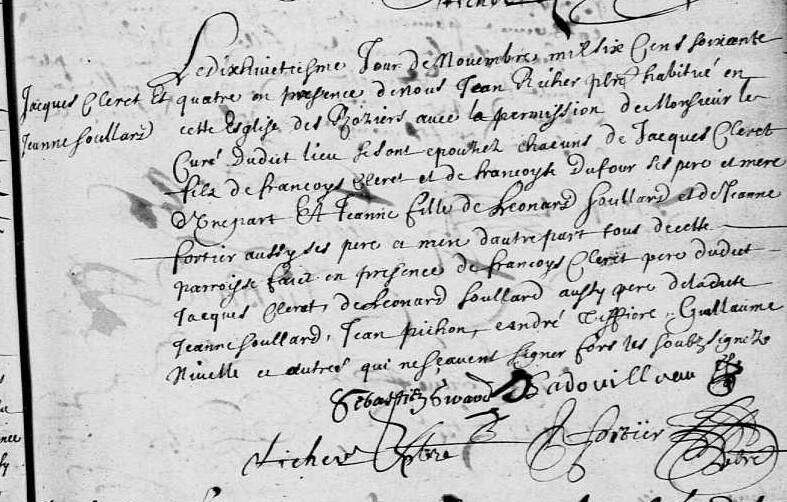 Le dixhuictiesme Jour de Novembre mil six Cens soixante
Jacques Cleret Et
Jeanne Soullard
quatre en presence de Nous Jean Richer pbre habitué en
cette Esglise des Roziers avec la permission de Monsieur le
Curé dudict lieu se sont epousez chacuns de Jacques Cleret
filz de francoys Cleret et de francoyse Dufour ses pere et mere
d'Une part Et Jeanne fille de Leonard Soullard et de Jeanne
fortier aussy ses pere et mere d'autre part tous de cette
parroisse faict en presence de francoys Cleret pere dudict
Jacques Cleret, de Leonard Soullard aussy pere de ladicte
Jeanne Soullard, Jean pichon, André Guillaume
Nivelle et autres qui ne sçavent signer fors les soubz signez
Sebastien
Richer pbre
J fortier